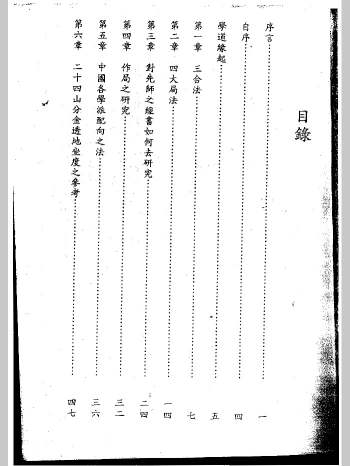 目錄
序言⋯⋯一
自序⋯⋯四
學道緣起⋯⋯五
第一章 三合法⋯⋯七
第二章 四大局法⋯⋯一四
第三章 對先師之經書如何去研究⋯⋯二四
第四章 作局之研究⋯⋯三二
第五章 中國各學派配向之法⋯⋯三六
第六章 二十四山分金透地坐度之參考⋯⋯四七